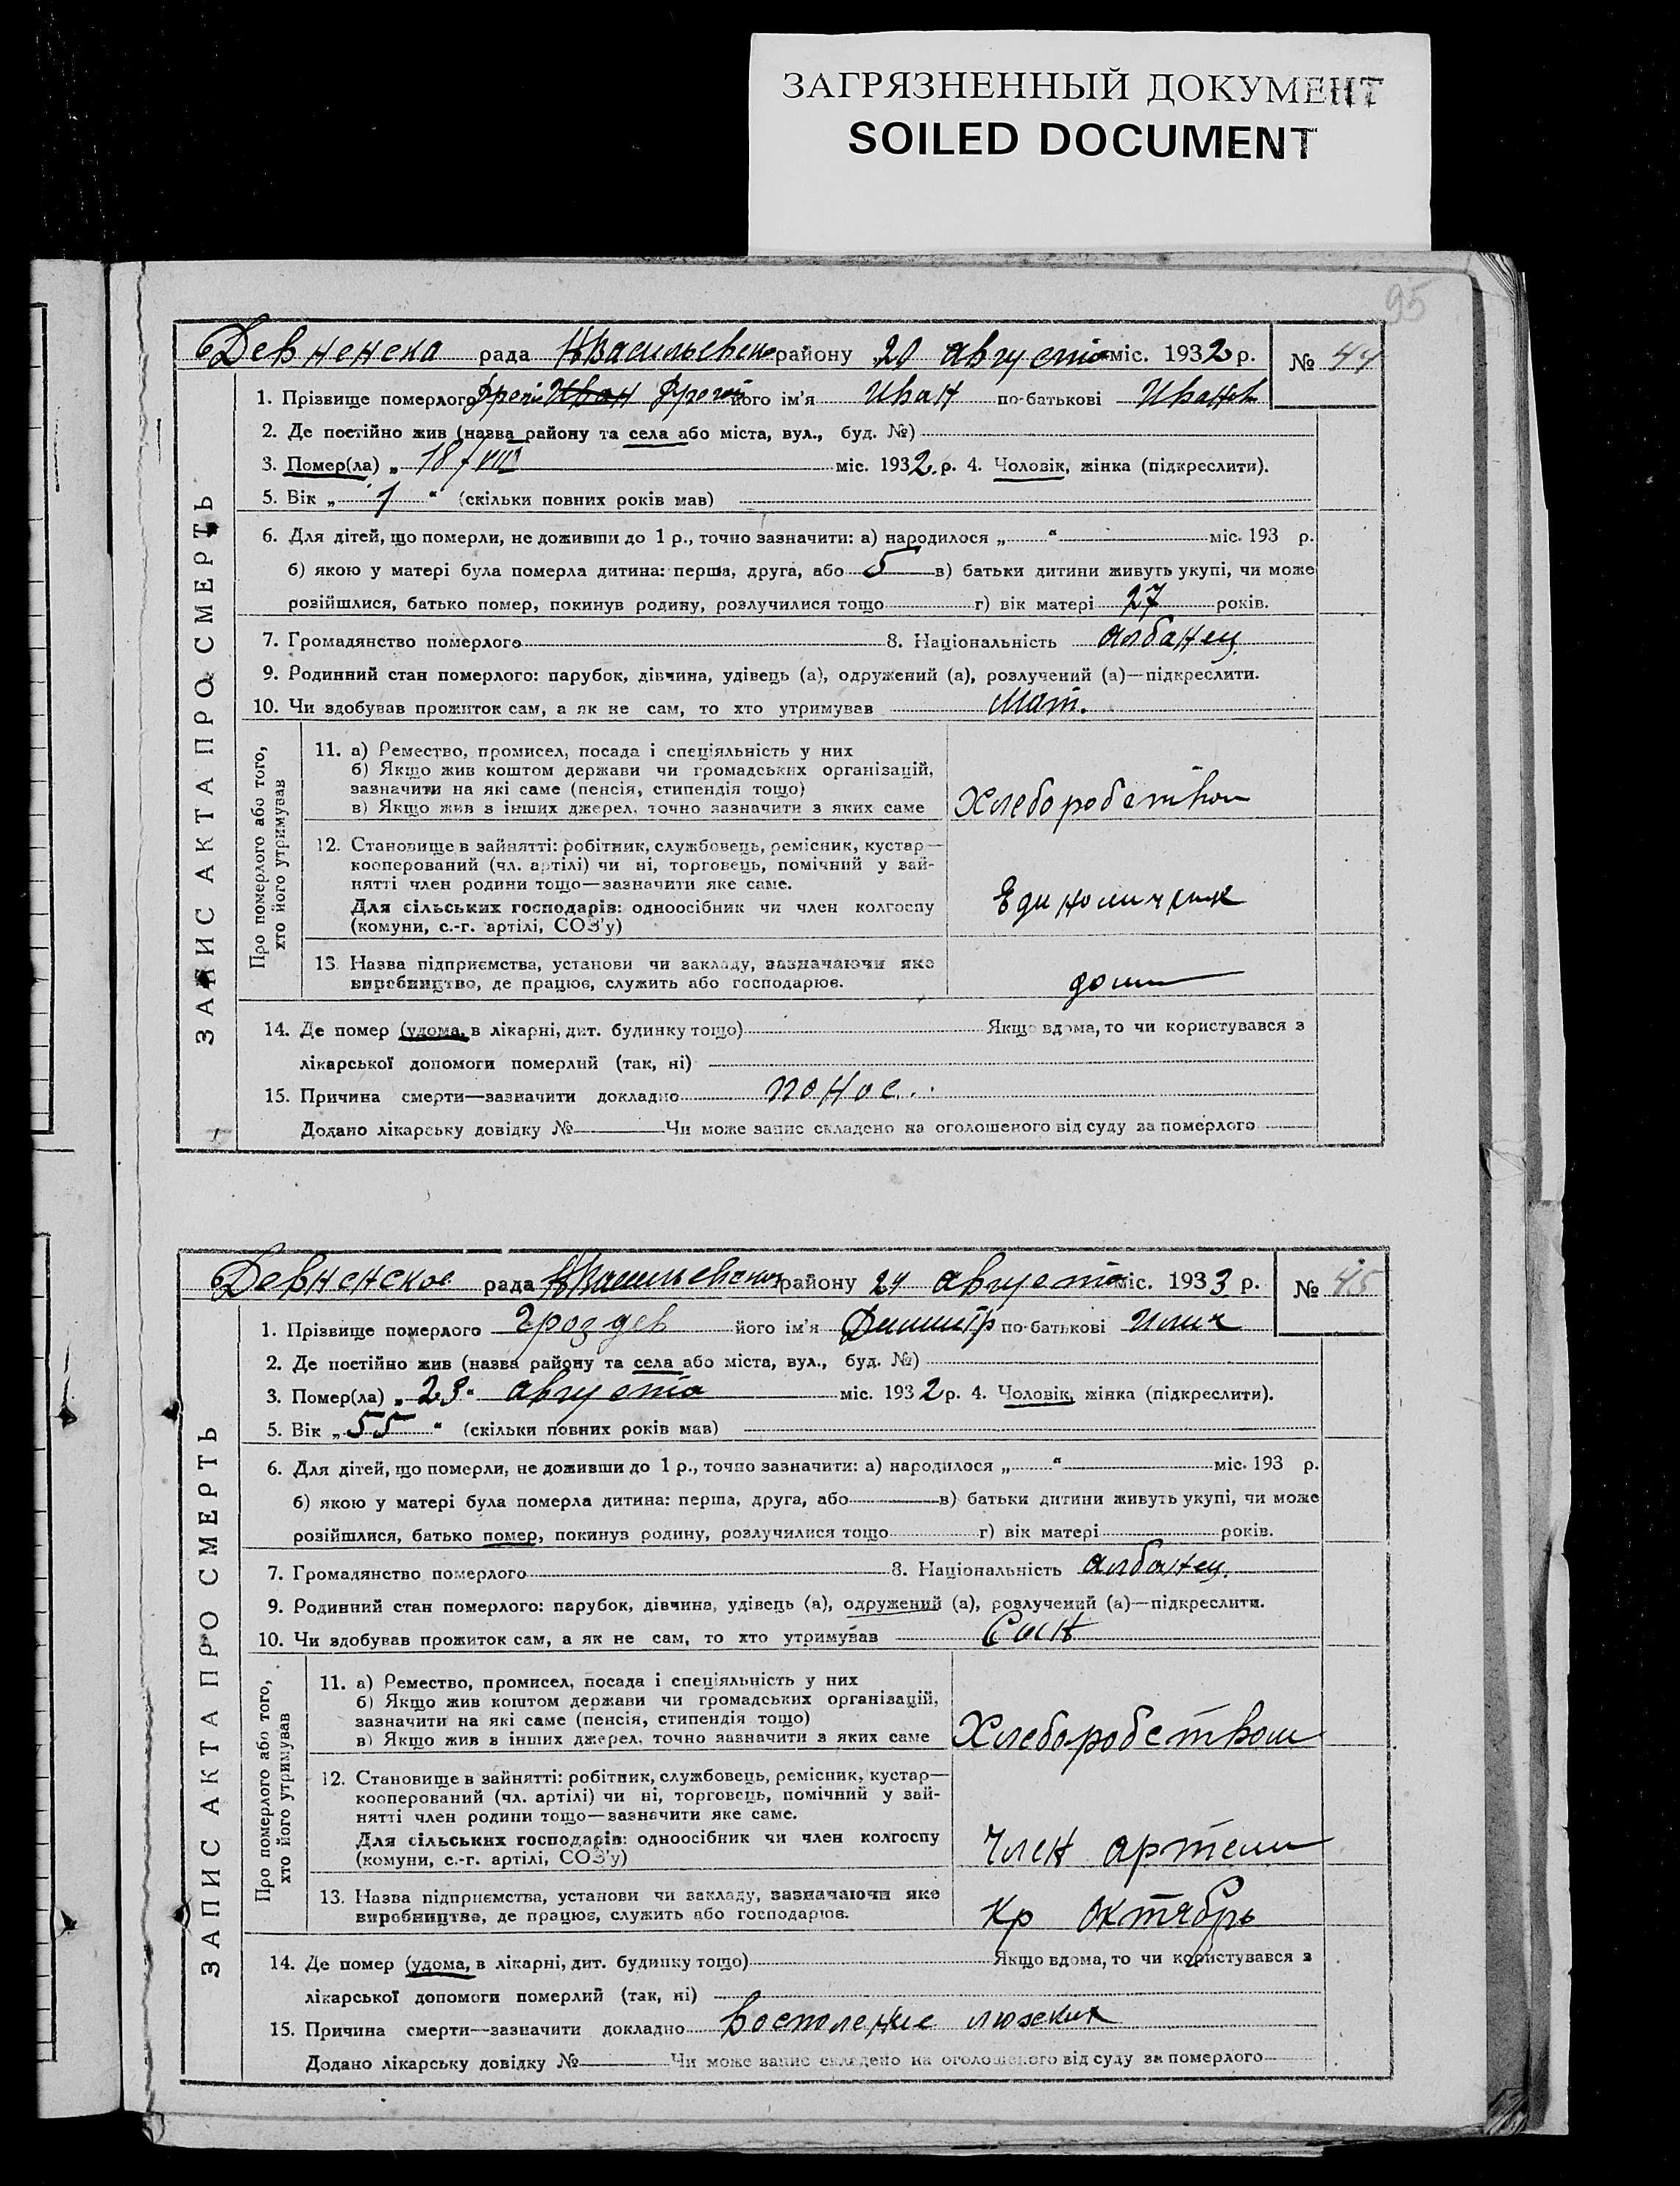 ЗАГРЯЗНЕННЫЙ ДОКУМЕНТ
SOILED DOCUMENT
95
Девненска рада района 20 августа міс. 1932 р. № 44
ЗАПИС АКТА ПРО СМЕРТЬ
1. Прізвище померлого його ім'я Иван по-батькові Иванов
2. Де постійно жив (назва району та села або міста, вул., буд. №)
3. Помер(ла) „ 18/VIII міс. 1932. р. 4. Чоловік, жінка (підкреслити).
5. Вік „ 1 “ (скільки повних років мав)
6. Для дітей, що померли, не доживши до 1 р., точно зазначити: а) народилося „ “ міс. 193 р.
б) якою у матері була померла дитина: перша, друга, або 5 в) батьки дитини живуть укупі, чи може
розійшлися, батько помер, покинув родину, розлучилися тощо г) вік матері 27 років.
7. Громадянство померлого 8. Національність албанец
9. Родинний стан померлого: парубок, дівчина, удівець (а), одружений (а), розлучений (а)—підкреслити.
10. Чи здобував прожиток сам, а як не сам, то хто утримував Мат.
Про померлого або того,
хто його утримував
11. а) Ремество, промисел, посада і спеціяльність у них
б) Якщо жив коштом держави чи громадських організацій,
зазначити на які саме (пенсія, стипендія тощо)
в) Якщо жив з інших джерел, точно зазначити з яких саме Хлеборобством
12. Становище в зайнятті: робітник, службовець, ремісник, кустар—
кооперований (чл. артілі) чи ні, торговець, помічний у зай-
нятті член родини тощо—зазначити яке саме.
Для сільських господарів: одноосібник чи член колгоспу Единоличник
(комуни, с.-г. артілі, СОЗ'у)
13. Назва підприємства, установи чи закладу, зазначаючи яке
виробництво, де працює, служить або господарює.
14. Де помер (удома, в лікарні, дит. будинку тощо) Якщо вдома, то чи користувався з
лікарської допомоги померлий (так, ні)
15. Причина смерти—зазначити докладно понос.
Додано лікарську довідку № Чи може запис складено на оголошеного від суду за померлого
Девненское рада району 24 августа міс. 1933 р. № 45
ЗАПИС АКТА ПРО СМЕРТЬ
1. Прізвище померлого Гроздев його ім'я Дмитр по-батькові Илич
2. Де постійно жив (назва району та села або міста, вул., буд. №)
3. Помер(ла) „ 23 “ августа міс. 1932 р. 4. Чоловік, жінка (підкреслити).
5. Вік „ 55 “ (скільки повних років мав)
6. Для дітей, що померли, не доживши до 1 р., точно зазначити: а) народилося „ “ міс. 193 р.
б) якою у матері була померла дитина: перша, друга, або в) батьки дитини живуть укупі, чи може
розійшлися, батько помер, покинув родину, розлучилися тощо г) вік матері років.
7. Громадянство померлого 8. Національність албанец.
9. Родинний стан померлого: парубок, дівчина, удівець (а), одружений (а), розлучений (а)—підкреслити.
10. Чи здобував прожиток сам, а як не сам, то хто утримував Сын
Про померлого або того,
хто його утримував
11. а) Ремество, промисел, посада і спеціяльність у них
б) Якщо жив коштом держави чи громадських організацій,
зазначити на які саме (пенсія, стипендія тощо)
в) Якщо жив в інших джерел, точно зазначити з яких саме Хлеборобством
12. Становище в зайнятті: робітник, службовець, ремісник, кустар—
кооперований (чл. артілі) чи ні, торговець, помічний у зай-
нятті член родини тощо—зазначити яке саме.
Для сільських господарів: одноосібник чи член колгоспу Член артели
(комуни, с.-г. артілі, СОЗ'у)
13. Назва підприємства, установи чи закладу, зазначаючи яке
виробництво, де працює, служить або господарює. Кр Октябрь
14. Де помер (удома, в лікарні, дит. будинку тощо) Якщо вдома, то чи користувався з
лікарської допомоги померлий (так, ні)
15. Причина смерти—зазначити докладно
Додано лікарську довідку № Чи може запис складено на оголошеного від суду за померлого